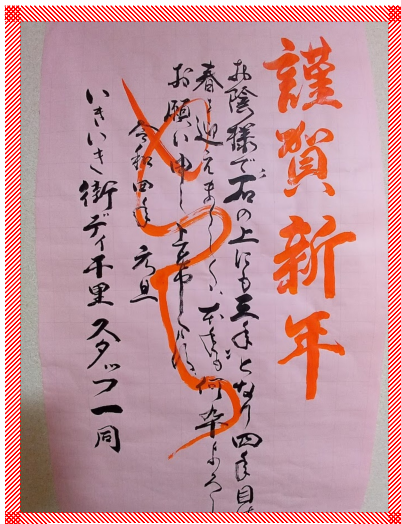 謹賀新年
お蔭様で石の上にも三年となり四年目
春を迎えました、本年も何卒よろし
お願い申し上
令和四年 元旦
いきいき街デイ千里 スタッフ一同